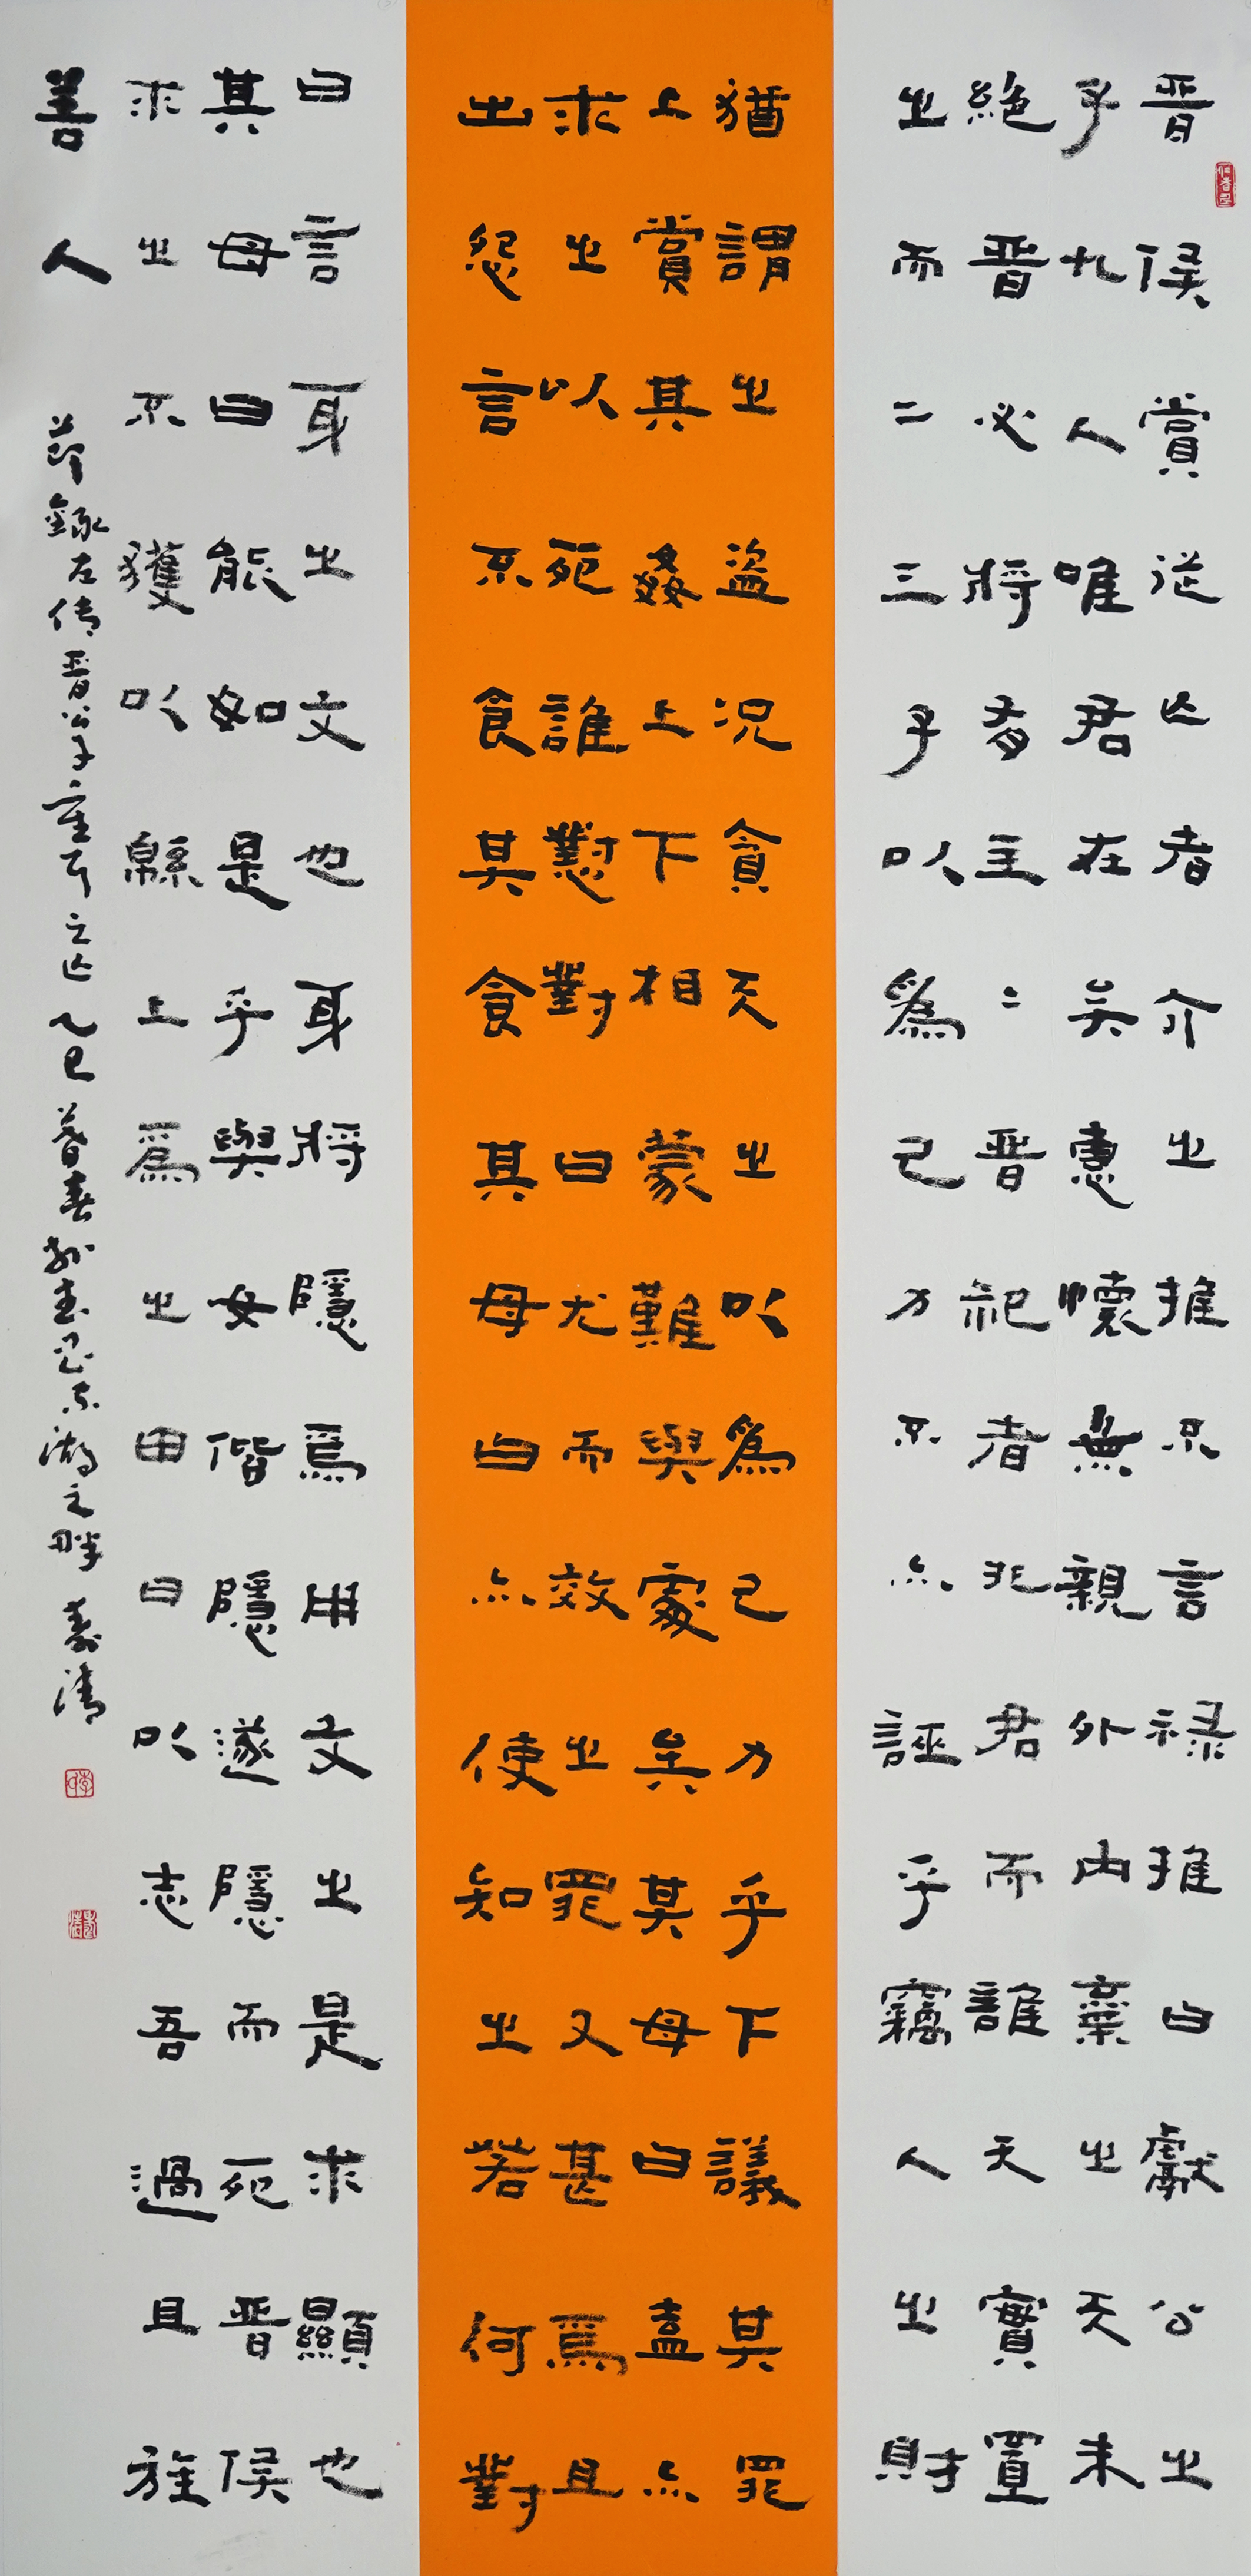 晋侯賞從亡者介之推不言禄推曰獻公之
子九人唯君在矣惠懷無親外内棄之天未
絶晋必將有主=晋祀者非君而誰天實置
之而二三子以爲己力不亦誣乎竊人之財
猶謂之盗况貪天之以爲己力乎下議其罪
上賞其姦上下相蒙難與處矣其母曰盍亦
求之以死誰懟對曰尤而效之罪又甚焉且
出怨言不食其食其母曰亦使知之若何對
曰言身之文也身將隱焉用文之是求顯也
其母曰能如是乎與女偕隱遂隱而死晋侯
求之不獲以緜上爲之田曰以志吾過且旌
善人
節録左传晋公子重耳之亡乙巳暮春於湖之畔